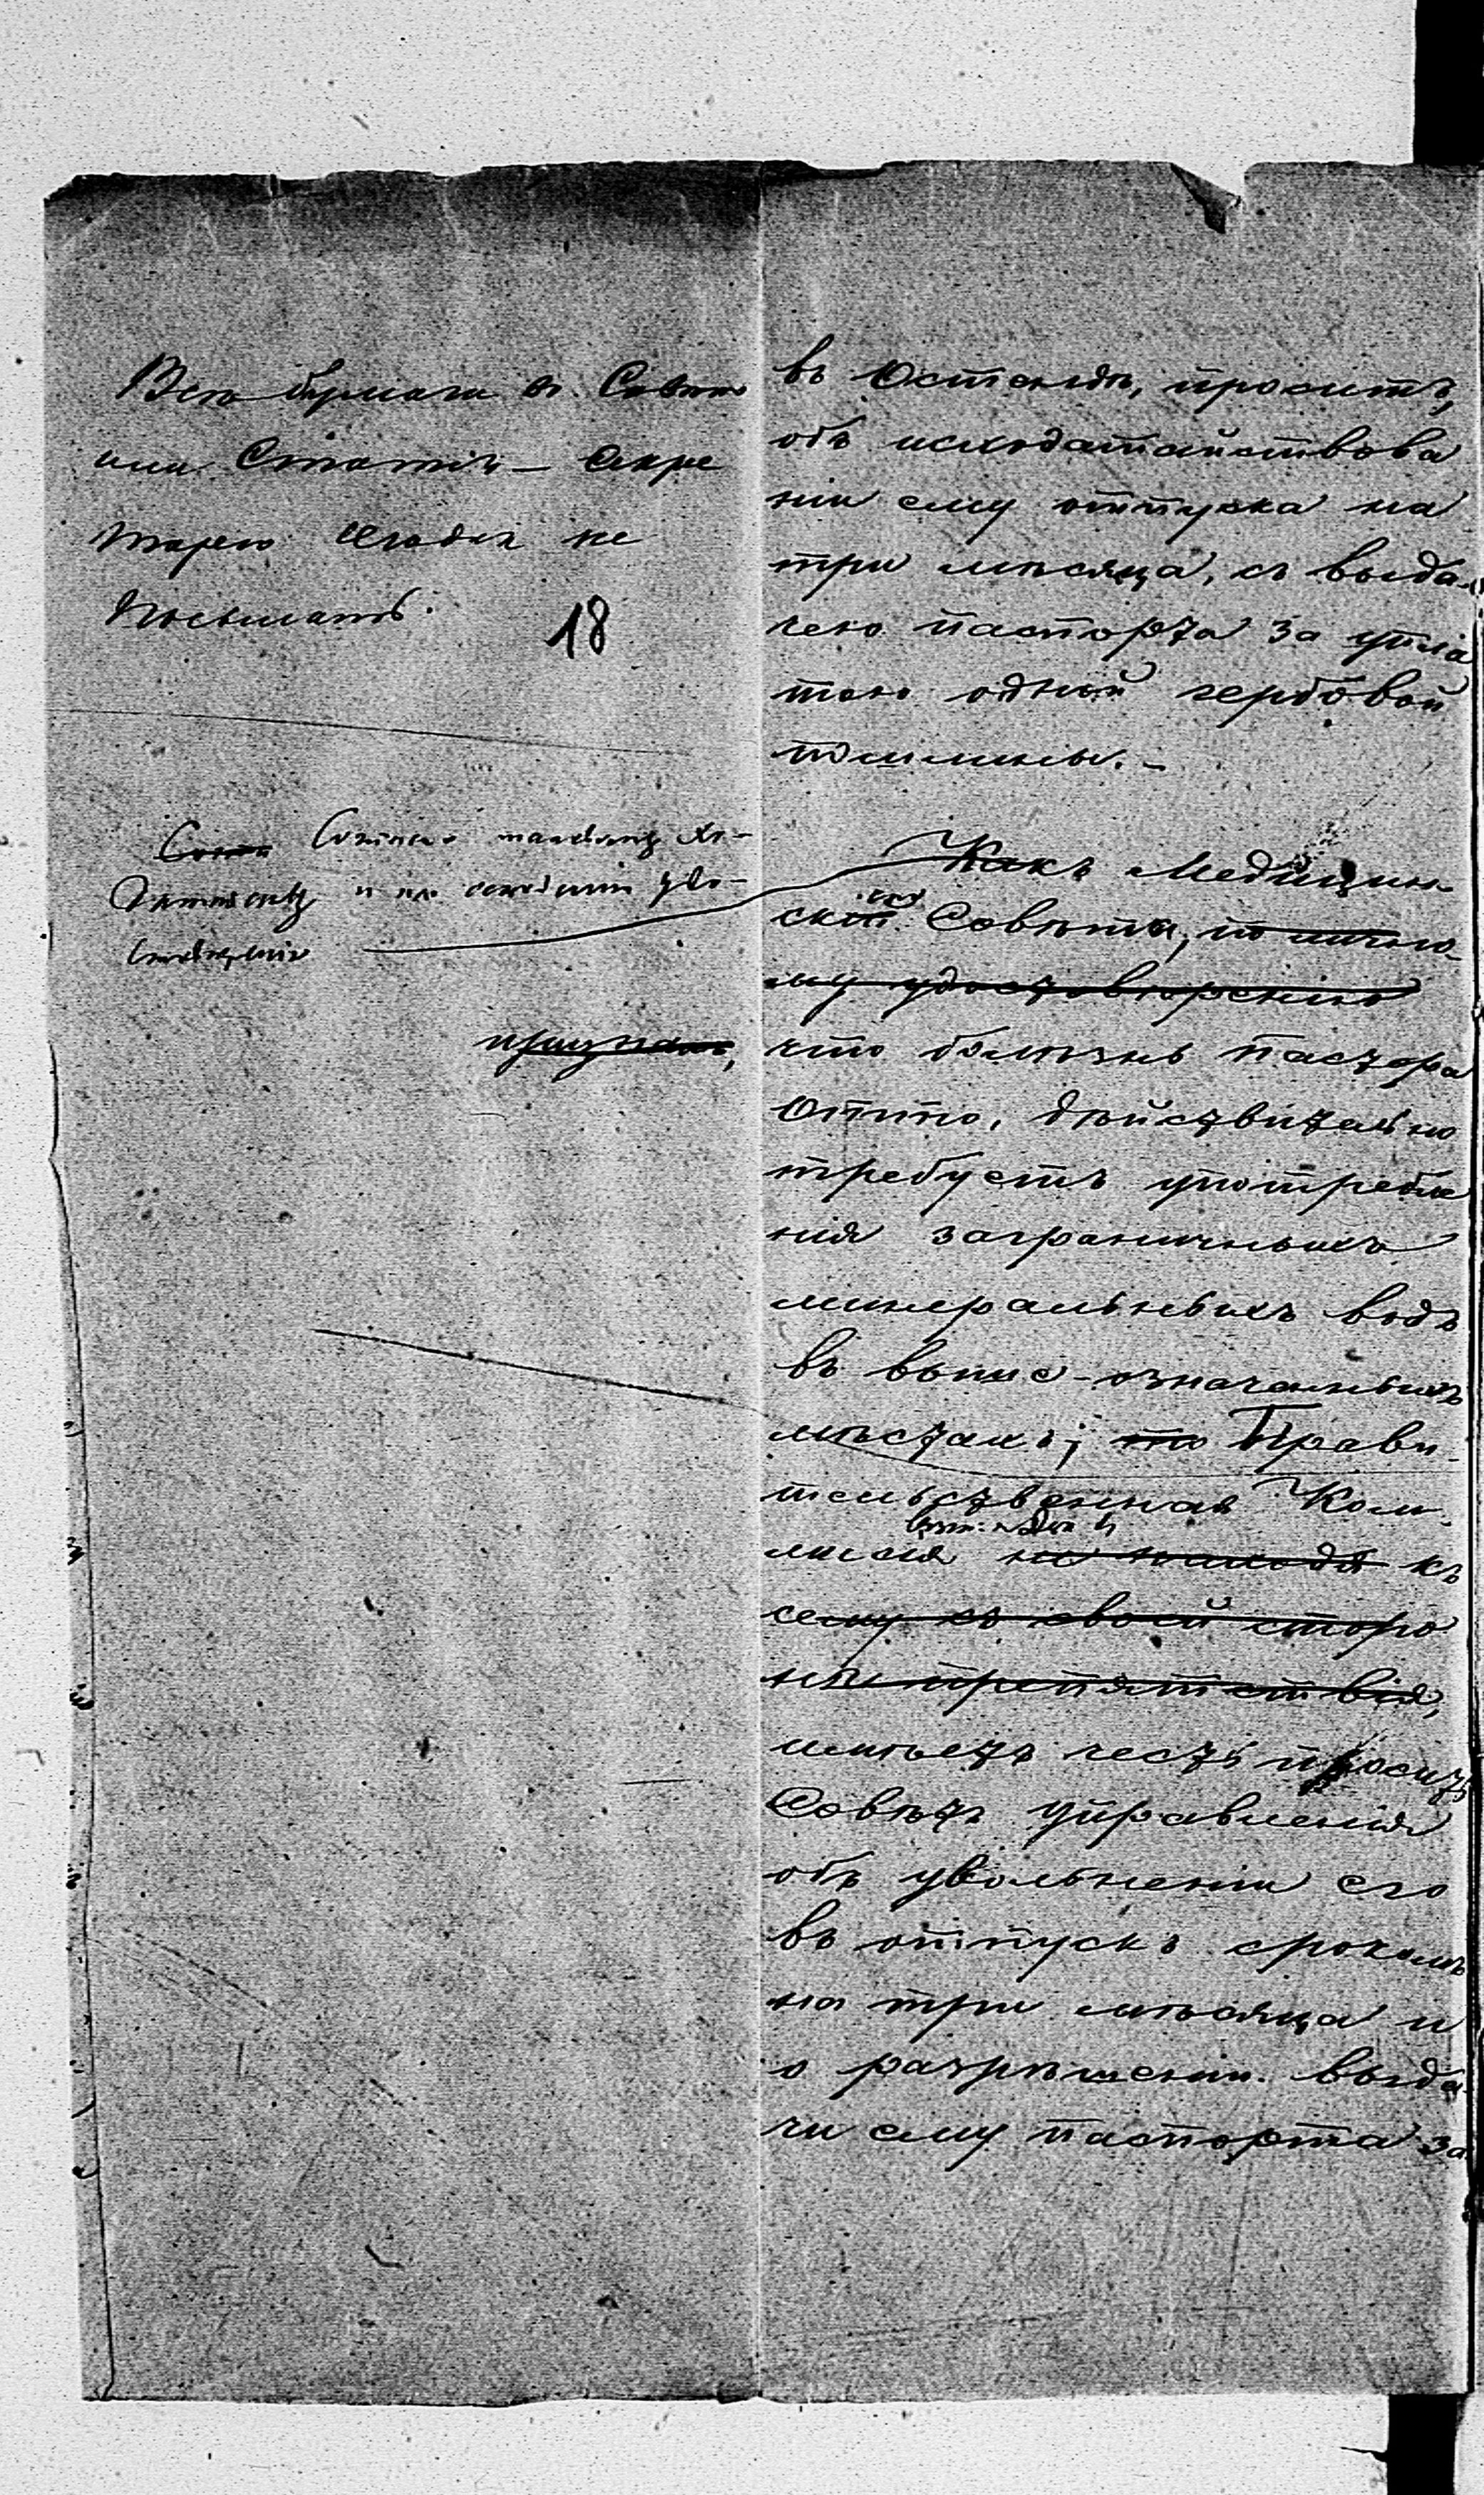 Всѣ бумаги въ Совѣтъ
или Статсъ-Секре
тарю сюда не
посылать.
18
удо-
въ Остенде, проситъ,
объ исходатайствова
нiи ему отпуска на
три мѣсяца, съ выда-
чею паспорта за упла
тою одной гербовой
пошлины.-
Какъ Медицин
скiй Совѣта, по лично-
му удостовѣренiю
что болѣзнь пастора
Отто, дѣйствительно
требуетъ употребле
нiя заграничныхъ
минеральныхъ водъ
въ выше-означенныхъ
мѣстахъ; то Прави-
тельственная Ком-
мисiя не находя къ
сему съ своей сторо
нѣ препятствiя,
имѣетъ честь просить
Совѣтъ Управленiя
объ увольненiи его
въ отпускъ срокомъ
на три мѣсяца и
о разрѣшенiи выда-
чи ему паспорта за